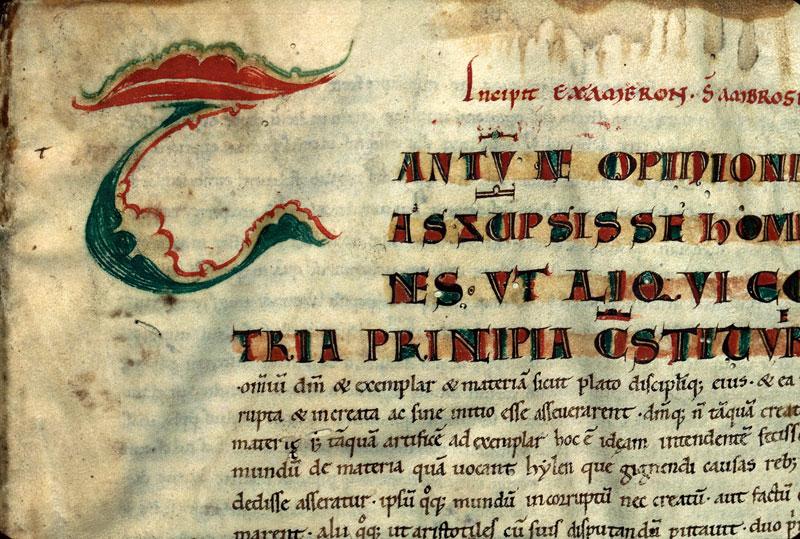 Incipit EXAMERON. S̄ AMBROSI
T
ANTV̄ NE OPINIONI
AS̄ZUPSISSE hOM
NES. VT ALIQVI EO
TRIA PRINIPIA C̄STITUVR
·om̄iū dm̄ & exemplar & materiā sicut plato discipliq; eius. & ea
rupta & increata ac sine initio esse asseuerarent. dm̄q; n̄ tāquā creat
materię s; tāquā artificē ad exemplar hoc ē ideam intendentē fecisse
mundū de materia quā uocant hylen que gignendi causas reb;
dedisse asseratur. ipsū q̊q; mundū incorruptū nec creatū. aut factū
marent. alii q̊q; ut aristotiles cū suis disputandū putauit. duo p